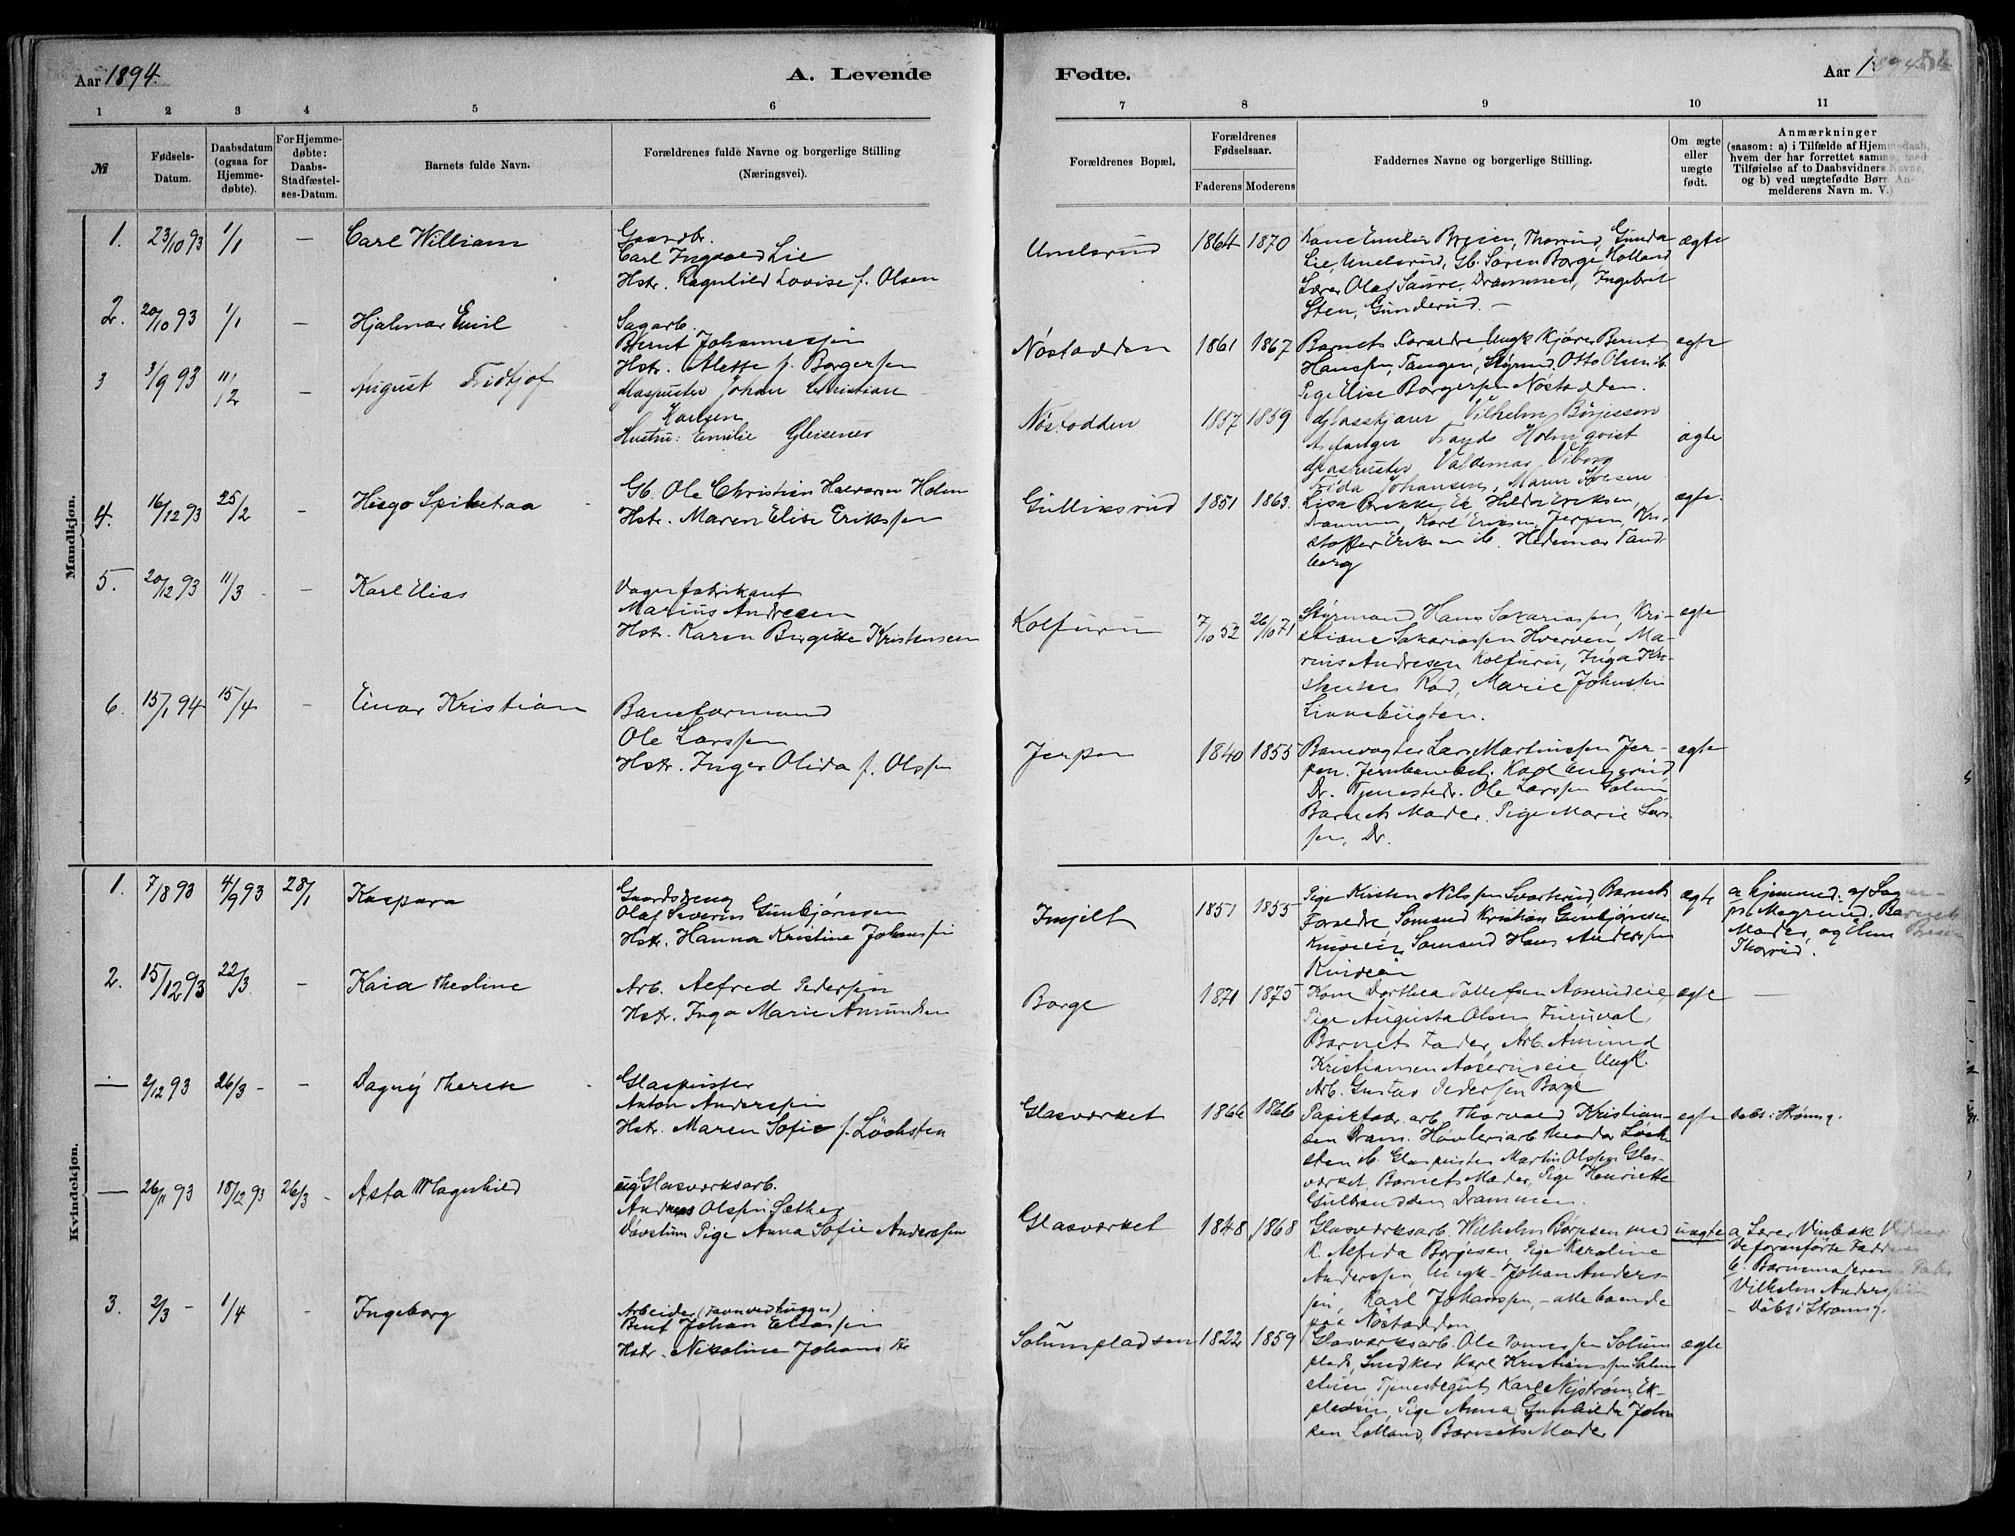 Aar 1894.
A. Levende
Fødte.
Aar 1894
54
1 2 3 4 5 6 7 8 9 10 11
№
Fødsels-
Datum.
Daabsdatum
(ogsaa for
Hjemme-
døbte).
For Hjemme-
døbte:
Daabs-
Stadfæstel-
ses-Datum.
Barnets fulde Navn.
Forældrenes fulde Navne og borgerlige Stilling
(Næringsvei).
Forældrenes Bopæl.
Forældrenes
Fødselsaar.
Faderens Moderens
Faddernes Navne og borgerlige Stilling.
Om ægte
eller
uægte
født.
Anmærkninger
(saasom: a) i Tilfælde af Hjemmedaab,
hvem der har forrettet samme, med
Tilføielse af to Daabsvidners Navne,
og b) ved uægtefødte Børn An-
melderens Navn m. V.)
Mandkjøn.
1. 23/10 93 1/1 — Carl William
Gaardbr.
Carl Ingvald Lie
Hstr. Ragnhild Lovise f. Olsen
Unelsrud 1864 1870
Kone Emilie Breien, Thorrud, Gunda
Lie, Unelsrud, Gb. Søren Borge Holland
Lærer Olaf Saure, Drammen, Ingebret
Sten, Gunderud. —
ægte
2. 20/10 93 1/1 — Hjalmar Emil
Sagarb.
Bernt Johannessen
Hstr. Alette f. Borgersen
Nøstodden 1861 1867
Barnets Forældre, Ungk Kjører Bernt
Hanssen, Tangen, Styrmd. Otto Olsen ib.
Pige Elise Borgersen Nøstodden.
ægte
3 3/9 93 11/2 August Fridtjof
Glaspuster Johan Christian
Karlsen
Hustru: Emilie Gleisner
Nøstodden 1857 1859
Glasskjærer Vilhelm Børjesson
Holmqvist
Glaspuster Valdemar Viborg
Frida Johansen, Maren Iversen
ægte
4. 16/12 93 25/2 — Hugo Spiketraa
Gb. Ole Christian Halvorsen Holm
Hstr. Maren Elise Erikssen
Gulliksrud 1851 1863.
Lisa Brekke, Ek, Hilda Eriksen,
Drammen, Karl Eriksen, Jerpen, Kri-
stoffer Eriksen ib. Hedemar Tand-
berg
ægte.
5. 20/12 93 11/3 — Karl Elias
Vognfabrikant
Marius Andresen
Hstr. Karen Birgitte Kristensen
Kolfuru 7/10 52 26/10 71
Styrmand Hans Sakariassen, Kri-
stiane Sakariassen Hverven, Ma-
rius Andresen Kolfuru, Inga Kri-
stensen Rød, Marie Johnsen
Linnebugten.
ægte
6. 15/1 94 15/4 — Einar Kristian
Baneformand
Ole Larssen
Hstr. Inger Olida f. Olssen
Jerpen 1840 1855
Banevogter Lars Martinssen Jer-
pen. Jernbanebetj. Karl Engerud
Dr. Tjenestedr. Ole Larssen Solum
Barnets Moder. Pige Marie Lars-
sen, Dr.
ægte
Kvindekjøn.
1. 7/8 93 4/9 93 28/1 Kaspara
Gaardsdreng
Olaf Severin Gunbjørnsen
Hstr. Hanna Kristine Johanssen
Ingjelt 1851 1855
Pige Kirsten Nilssen Svarterud, Barnets
Forældre, Sømand Kristian Gunbjørnsen
Kniveien, Sømand Hans Anderssen
Kniveien
ægte
a. hjemmed. af Sogne-
pr. Magelssen. Barnets
Moder, og Elen Breien
Thorrud.
2. 15/12 93 22/3. — Kaia Theoline
Arb. Alfred Pedersen
Hstr. Inga Marie Amundsen
Borge 1871 1875
Kone Dorthea Tollefsen Aaserudeie,
Pige Augusta Olsen Furuval,
Barnets Fader, Arb. Amund
Kristiansen Aaserudeie Ungk.
Arb. Gustav Pedersen Borge
ægte —
— 2/12 93 26/3 — — Dagny Therese
Glaspuster
Anton Anderssen
Hstr. Maren Sofie f. Løchsten
Glasværket 1864 1866
Papirfabr. arb. Thorvald Kristian-
sen Dram. Høvleriarb. Theodor Løch-
sten ib. Glaspuster Martin Olssen Glas-
værket, Barnets Moder, Pige Henriette
Gulbrandsen Drammen.
ægte Døbt i Strømsg.
— 26/11 93 18/12 93 26/3 — Asta Magnhild
ug Glasværksarb.
Andreas Olssen Sæther
Pige Anna Sofie Anderssen
Glasværket 1848 1868
Glasværksarb. Wilhelm Børjesen med
K. Alfida Borgesen, Pige Karoline
Anderssen, Ungk. Johan Anders-
sen, Karl Johanssen, — alle boende
paa Nøstodden
uægte
a. Lærer Vinbæk Vidner
de foranførte Faddere
b. Barnemoderens Fader
Vilhelm Anderssen
— Døbt i Strømsg.
3. 2/3 — 1/4 — Ingeborg
Arbeider (Favnvedhugger)
Bent Johan Eliassen
Hstr. Nikoline Johans dtr
Solumpladsen 1822 1859
Glasværksarb. Ole Tomessen Solum-
plads, Snedker Karl Kristianssen Solum-
eien, Tjenestegut Karl Nystrøm, Ek-
pladsen, Pige Anna Gunhilda Johan-
sen Lolland, Barnets Moder
ægte